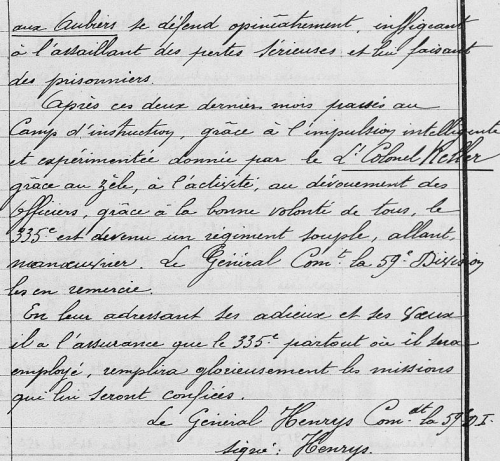 aux Aubiers se défend opiniâtrement, infligeant
à l'assaillant des pertes sérieuses et lui faisant
des prisonniers.
Après ces deux derniers mois passés au
Camp d'instruction, grâce à l'impulsion intelligente
et expérimentée donnée par le Lt Colonel Keller
grâce au zèle, à l'activité, au dévouement des
Officiers, grâce à la bonne volonté de tous, le
335e est devenu un régiment souple, allant,
manœuvrier. Le Général Comt la 59e Division
les en remercie.
En leur adressant ses adieux et ses vœux
il a l'assurance que le 335e partout où il sera
employé, remplira glorieusement les missions
qui lui seront confiées.
Le Général Henrys Comdt la 59e D.I.
signé : Henrys.